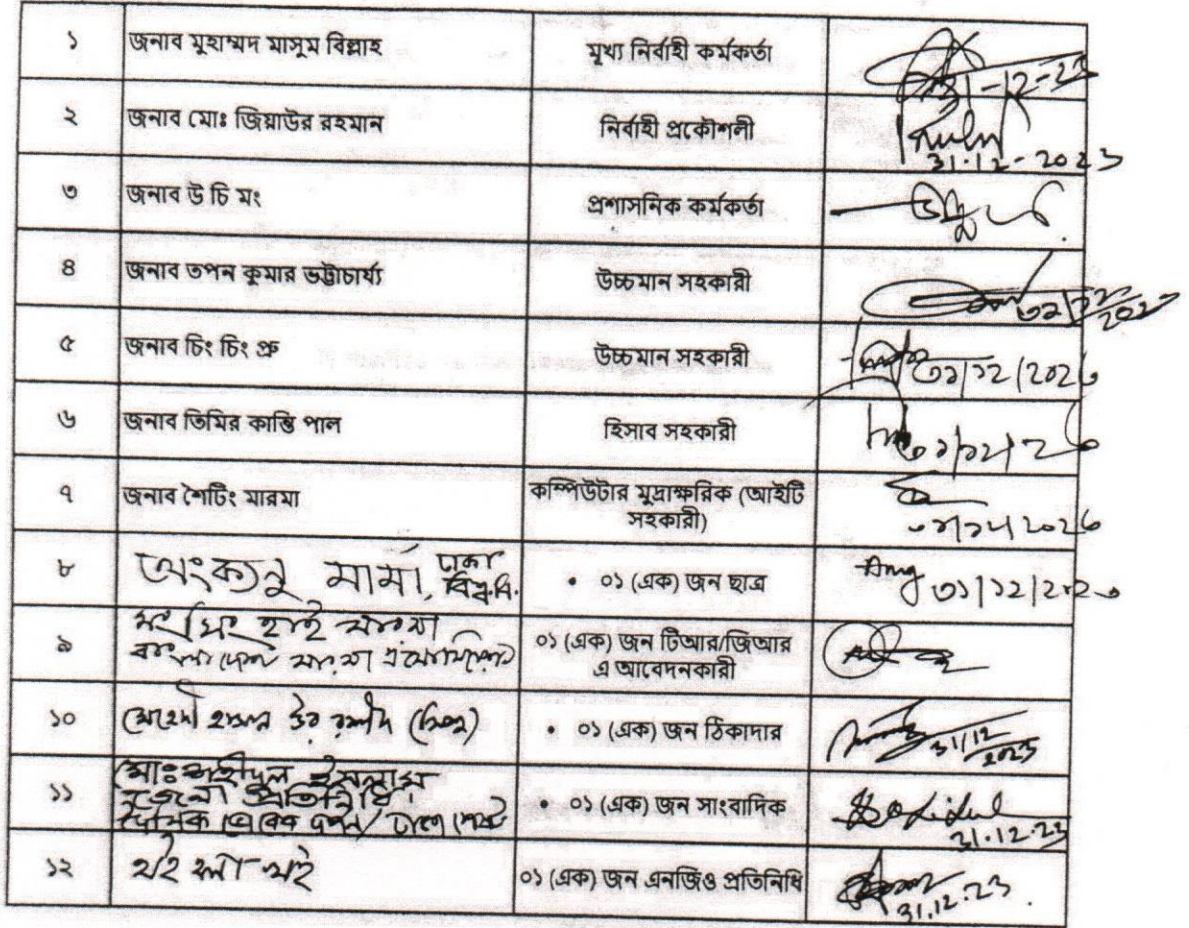 ১ জনাব মুহাম্মদ মাসুম বিল্লাহ মূখ্য নির্বাহী কর্মকর্তা 31-12-23
২ জনাব মোঃ জিয়াউর রহমান নির্বাহী প্রকৌশলী 31.12-2023
৩ জনাব উ চি মং প্রশাসনিক কর্মকর্তা
৪ জনাব তপন কুমার ভট্টাচার্য্য উচ্চমান সহকারী
৫ জনাব চিং চিং প্রু উচ্চমান সহকারী ৩১/১২/২০২৩
৬ জনাব তিমির কান্তি পাল হিসাব সহকারী ৩১/১২/২৩
৭ জনাব শৈটিং মারমা কম্পিউটার মুদ্রাক্ষরিক (আইটি
সহকারী) ৩১/১২/২০২৩
৮ অংক্যনু মার্মা, ঢাকা
বিশ্ব.বি. • ০১ (এক) জন ছাত্র ৩১/১২/২০২৩
৯ ০১ (এক) জন টিআর/জিআর
এ আবেদনকারী
১০ • ০১ (এক) জন ঠিকাদার 31/12
2023
১১ মোঃ শহীদুল ইসলাম
জেলা প্রতিনিধি
দৈনিক • ০১ (এক) জন সাংবাদিক 31.12.23
১২ ০১ (এক) জন এনজিও প্রতিনিধি 31.12.23